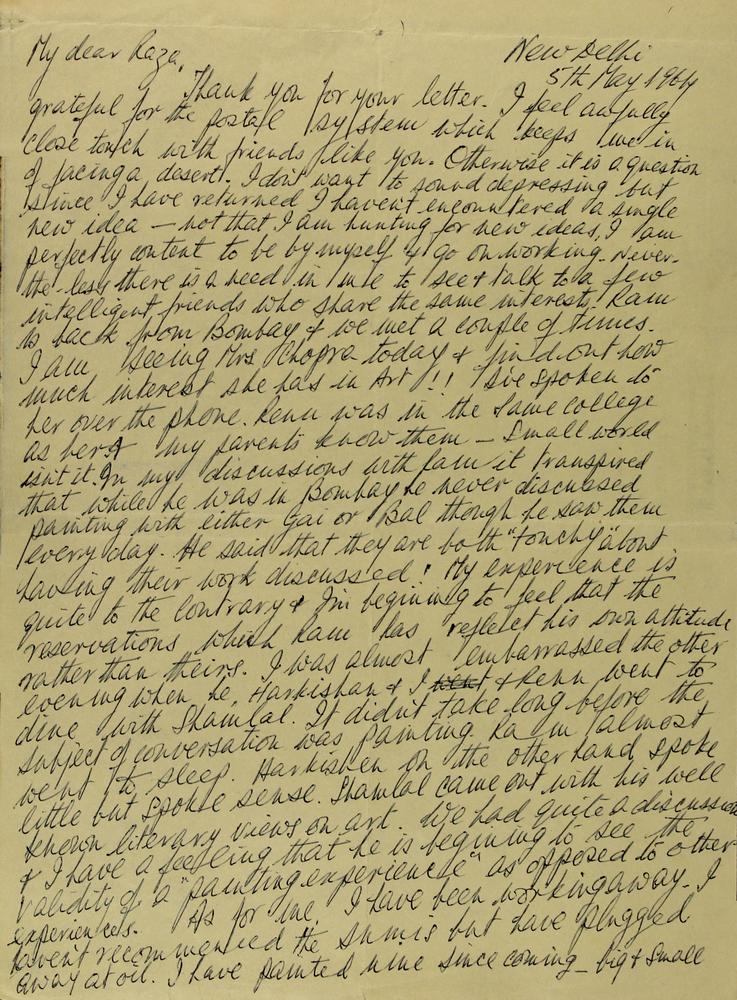 My dear Raza,
New Delhi
5th May 1964
Thank you for your letter. I feel awfully
grateful for the postal system which keeps me in
close touch with friends like you. Otherwise it is a question
of facing a desert. I don't want to sound depressing but
since I have returned I havent encountered a single
new idea — not that I am hunting for new ideas, I am
perfectly content to be by myself & go on working. Never-
the-less there is a need in me to see & talk to a few
intelligent friends who share the same interests. Ram
is back from Bombay & we met a couple of times.
I am seeing Mrs Chopra today & find out how
much interest she has in Art!! I've spoken to
her over the phone. Renu was in the same college
as her & my parents know them — Small world
isn't it. In my discussions with Ram it transpired
that while he was in Bombay he never discussed
painting with either Gai or Bal though he saw them
every day. He said that they are both "touchy" about
having their work discussed! My experience is
quite to the contrary & I'm begining to feel that the
reservations which Ram has reflect his own attitude
rather than theirs. I was almost embarrassed the other
evening when he, Harkishan & I went & Renu went to
dine with Shamlal. It didn't take long before the
subject of conversation was painting. Ram almost
went to sleep. Harkishen on the other hand spoke
little but spoke sense. Shamlal came out with his well
known literary views on art. We had quite a discussion
& I have a feeling that he is begining to see the
validity of a "painting experience" as opposed to other
experiences. As for me, I have been working away. I
havent recommenced the sumis but have plugged
away at oil. I have painted nine since coming — big & small